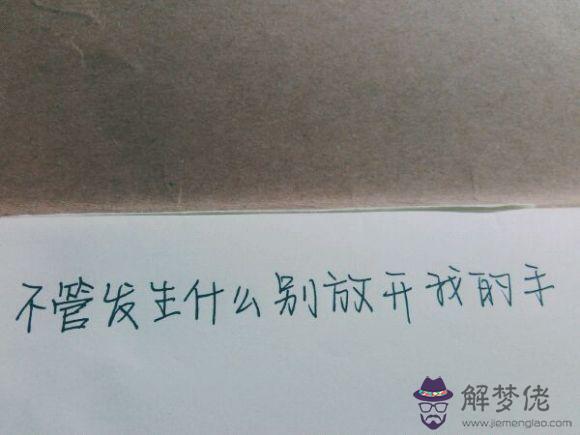 不管发生什么别放开我的手
解梦佬
www.jiemenglao.com